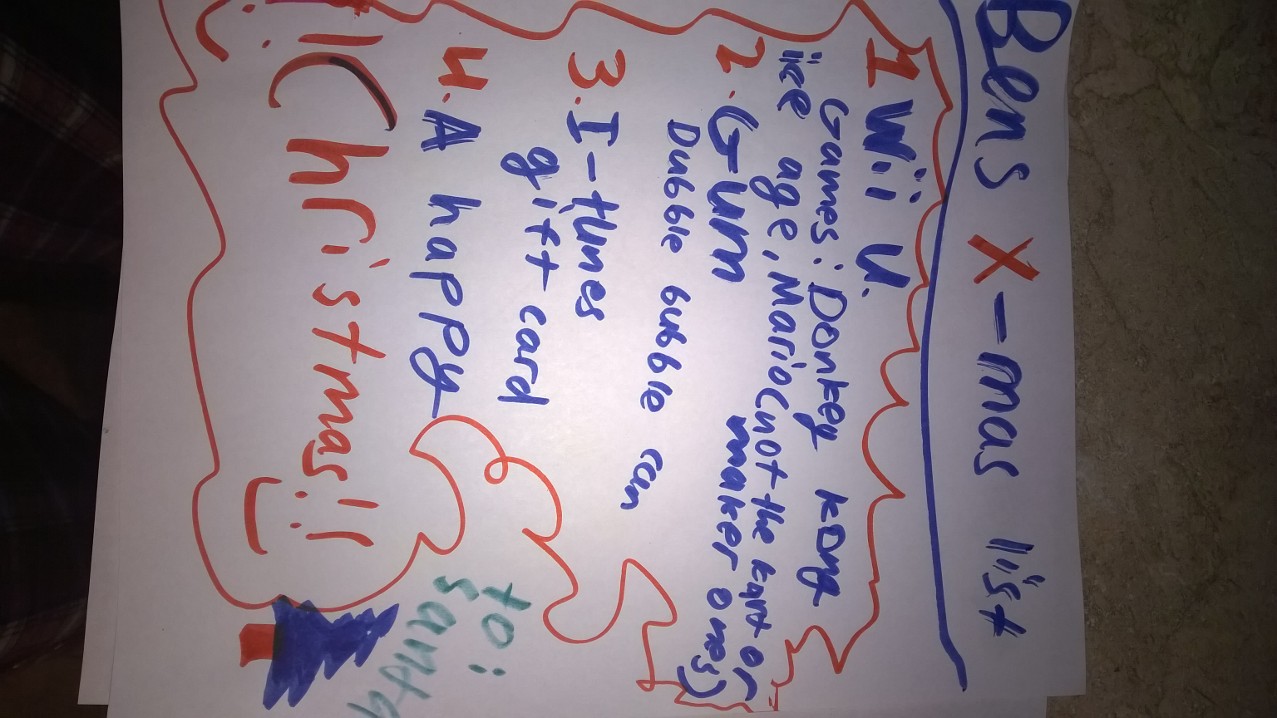 Bens X-mas list
1 Wii U.
Games: Donkey Kong
ice age, Mario(not the kart or
maker ones)
2. Gum
Dubble bubble can
3. I-tunes
gift card
4. A happy
!Christmas!!
to:
santa